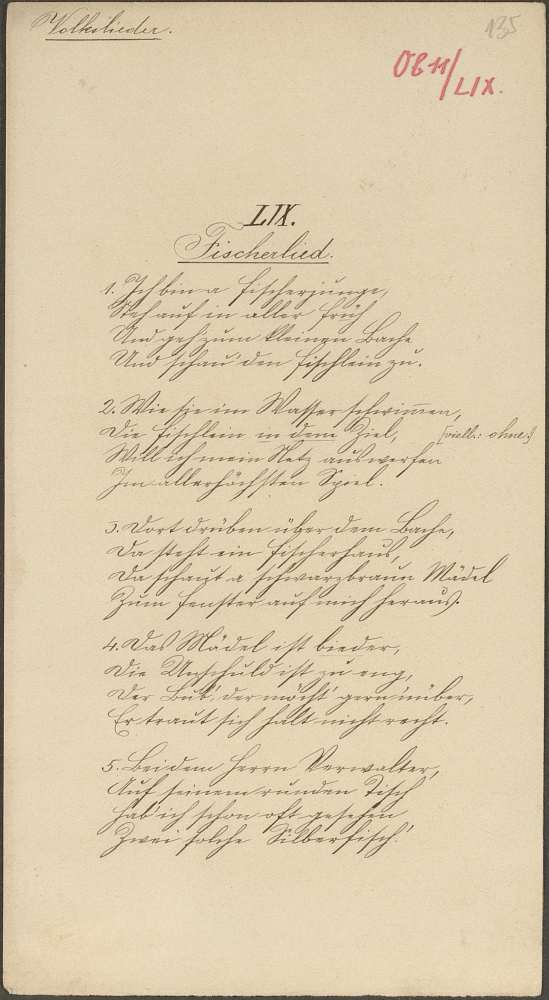 Volkslieder.
135
OB 11/
LIX.
LIX.
Fischerlied.
1. Ich bin a Fischerjunge,
Steh auf in aller Früh
Und geh zum kleinen Bache
Und schau' den Fischlein zu.
2. Wie sie im Wasser schwim̅en,
Die Fischlein in dem Ziel, [vielb.: ohne.]
Will ich mein Netz auswerfen
Im allerhöchsten Spiel.
3. Dort drüben über dem Bache,
Da steht ein Fischerhaus,
Da schaut a schwarzbraun Mädel
Zum Fenster auf mich heraus.
4. Das Mädel ist bieder,
Die Unschuld ist zu eng,
Der Bub', der möcht' gern 'nüber,
Er traut sich halt nicht recht.
5. Bei dem Herrn Verwalter,
Auf seinem runden Tisch
Hab' ich schon oft gesehen
Zwei solche Silberfisch'.